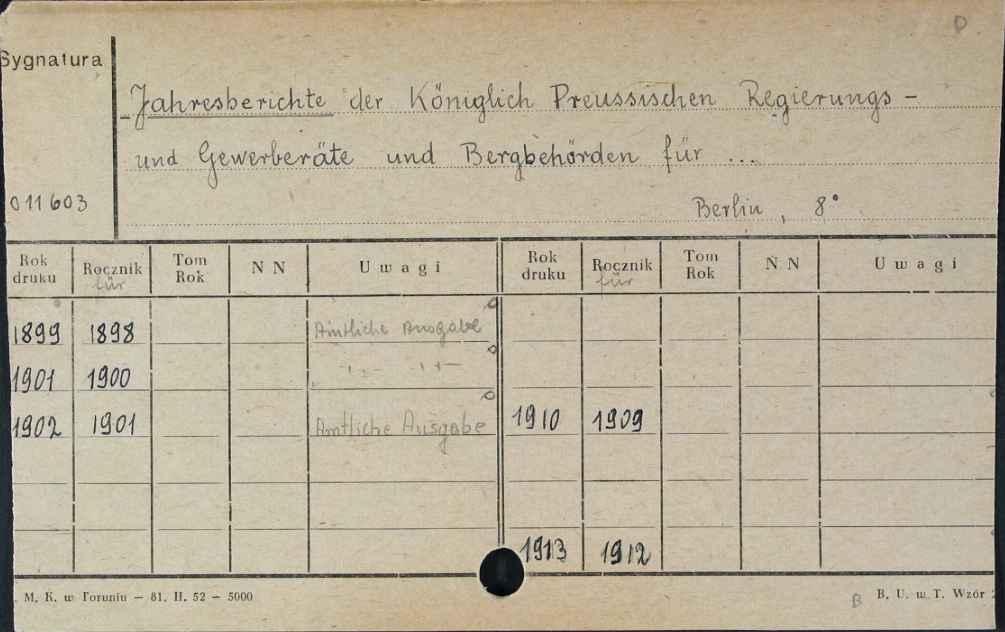 D
Sygnatura
Jahresberichte der Königlich Preussischen Regierungs-
und Gewerberäte und Bergbehörden für ...
011603
Berlin, 8°
Rok druku Rocznik für Tom Rok N N Uwagi Rok druku Rocznik für Tom Rok N N Uwagi
1899 1898 Amtliche Ausgabe
1901 1900 -"- -"-
1902 1901 Amtliche Ausgabe 1910 1909
1913 1912
M. K. w Toruniu — 81. II. 52 — 5000
B B. U. w T. Wzór